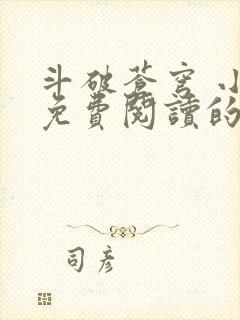 斗破苍穹 小
免費閱讀的
司彥